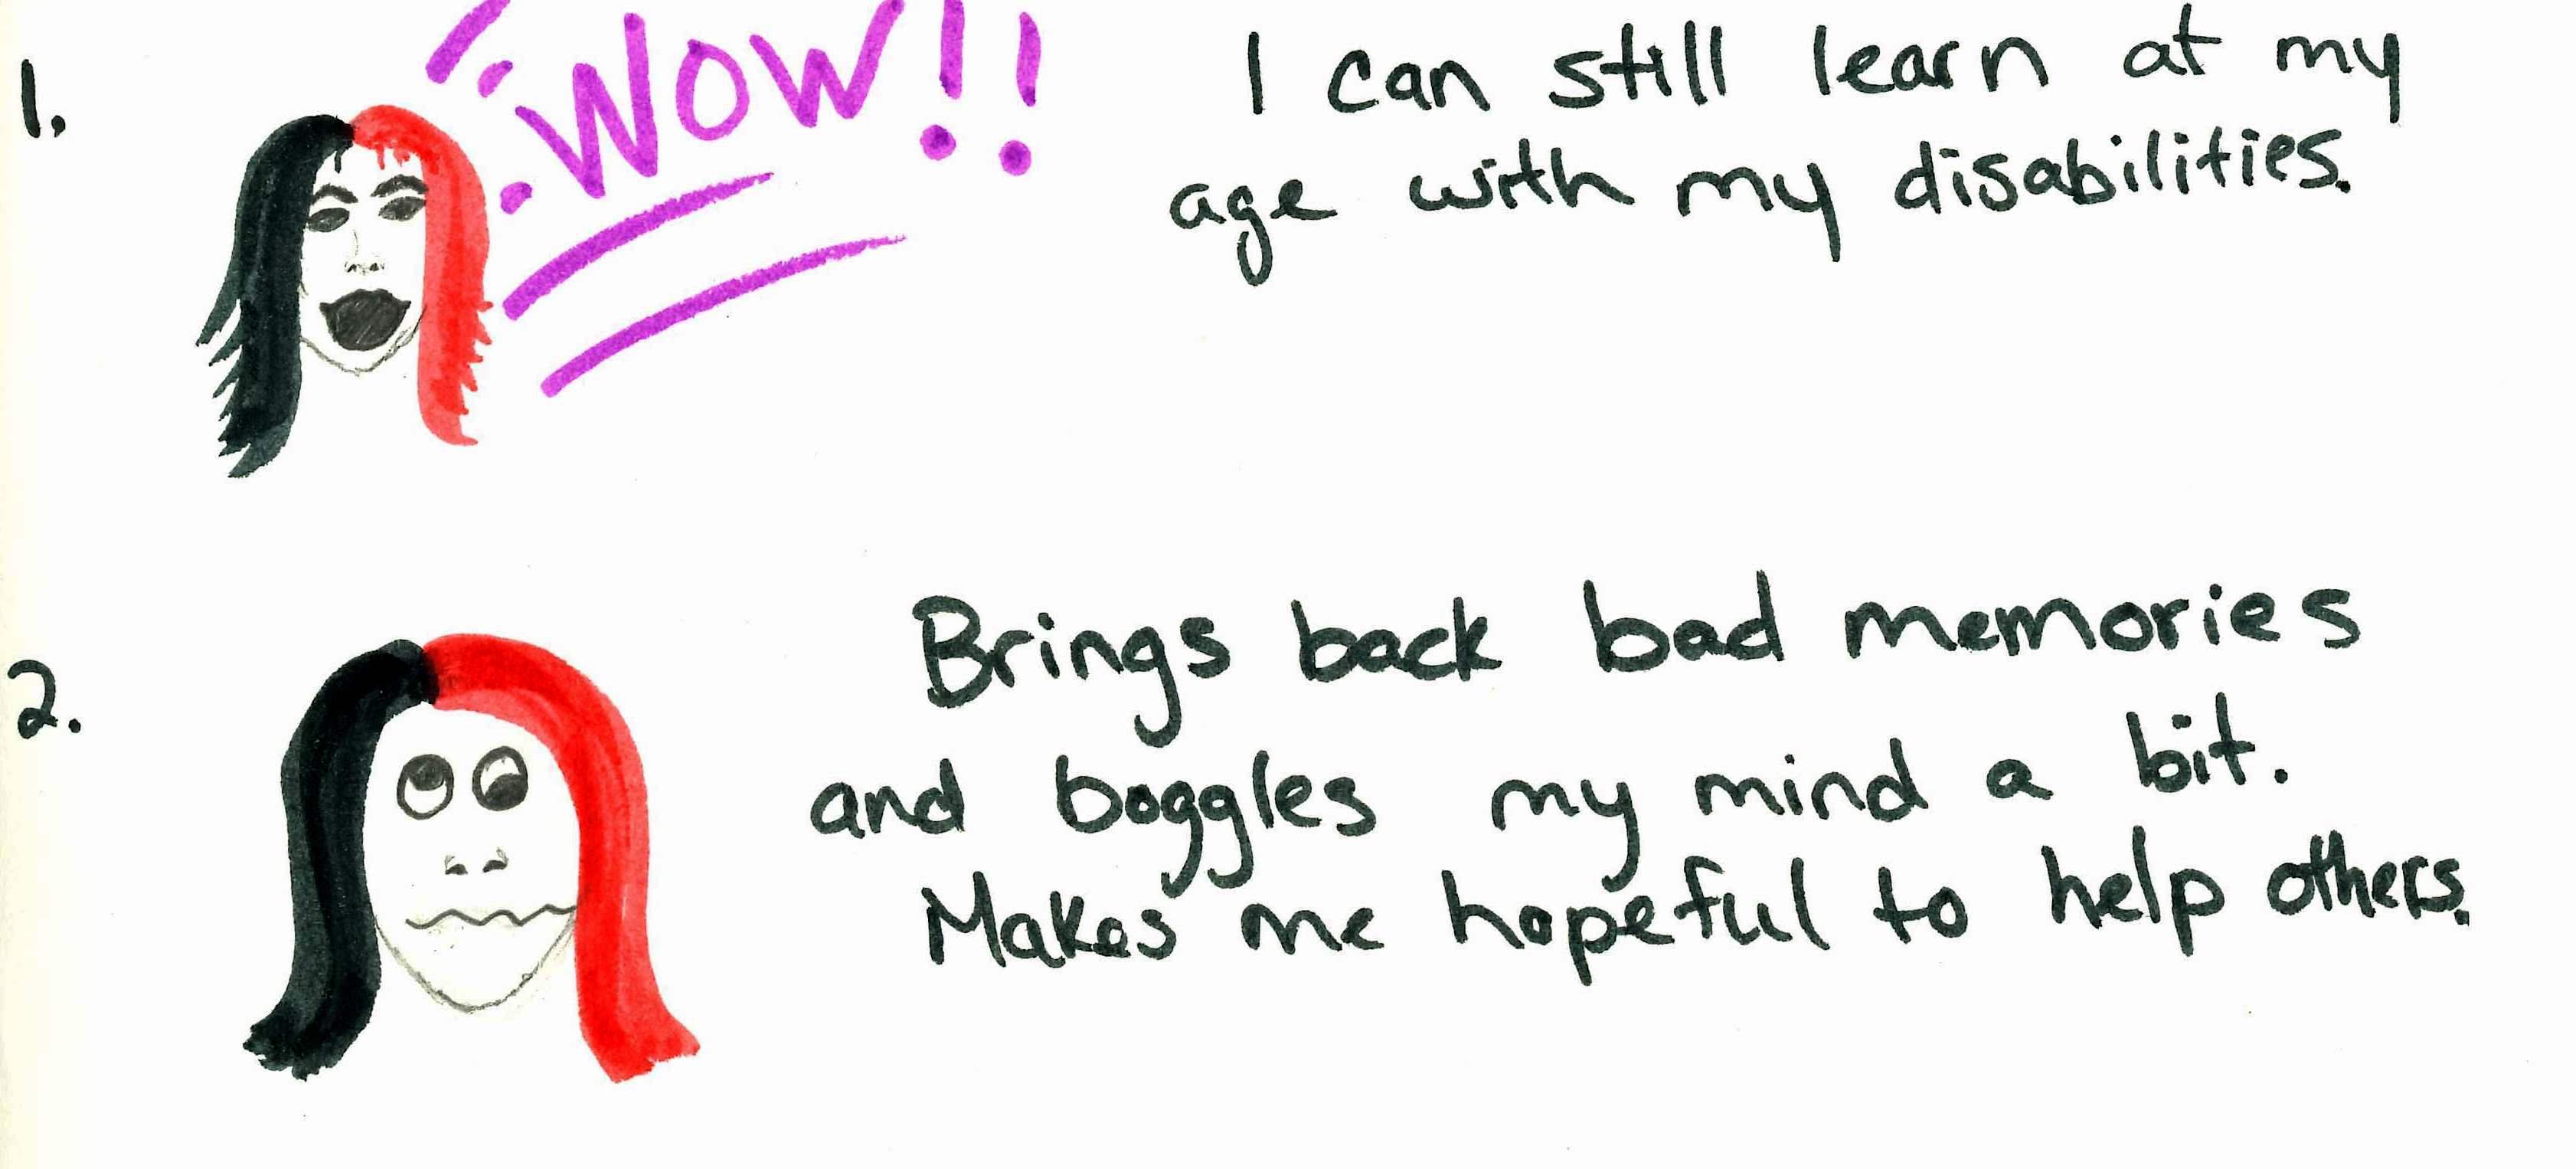 1.
WOW!!
I can still learn at my
age with my disabilities.
2.
Brings back bad memories
and boggles my mind a bit.
Makes me hopeful to help others.